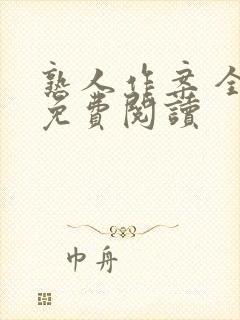 熟人作案全
免費閱讀
巾舟